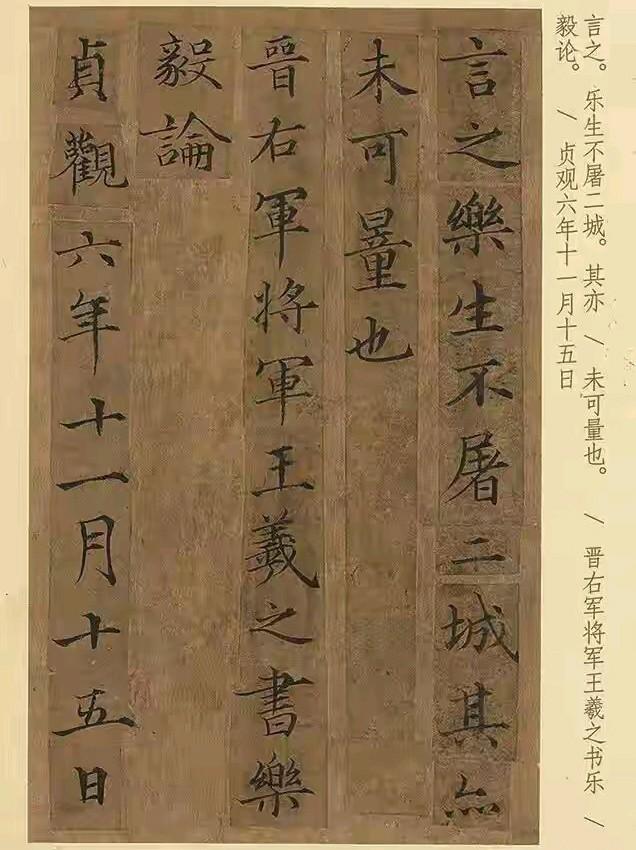 言之。乐生不屠二城。其亦 \ 未可量也。 \ 晋右军将军王羲之书乐 \
毅论。 \ 贞观六年十一月十五日
言之樂生不屠二城其亦
未可量也
晉右軍將軍王羲之書樂
毅論
貞觀六年十一月十五日